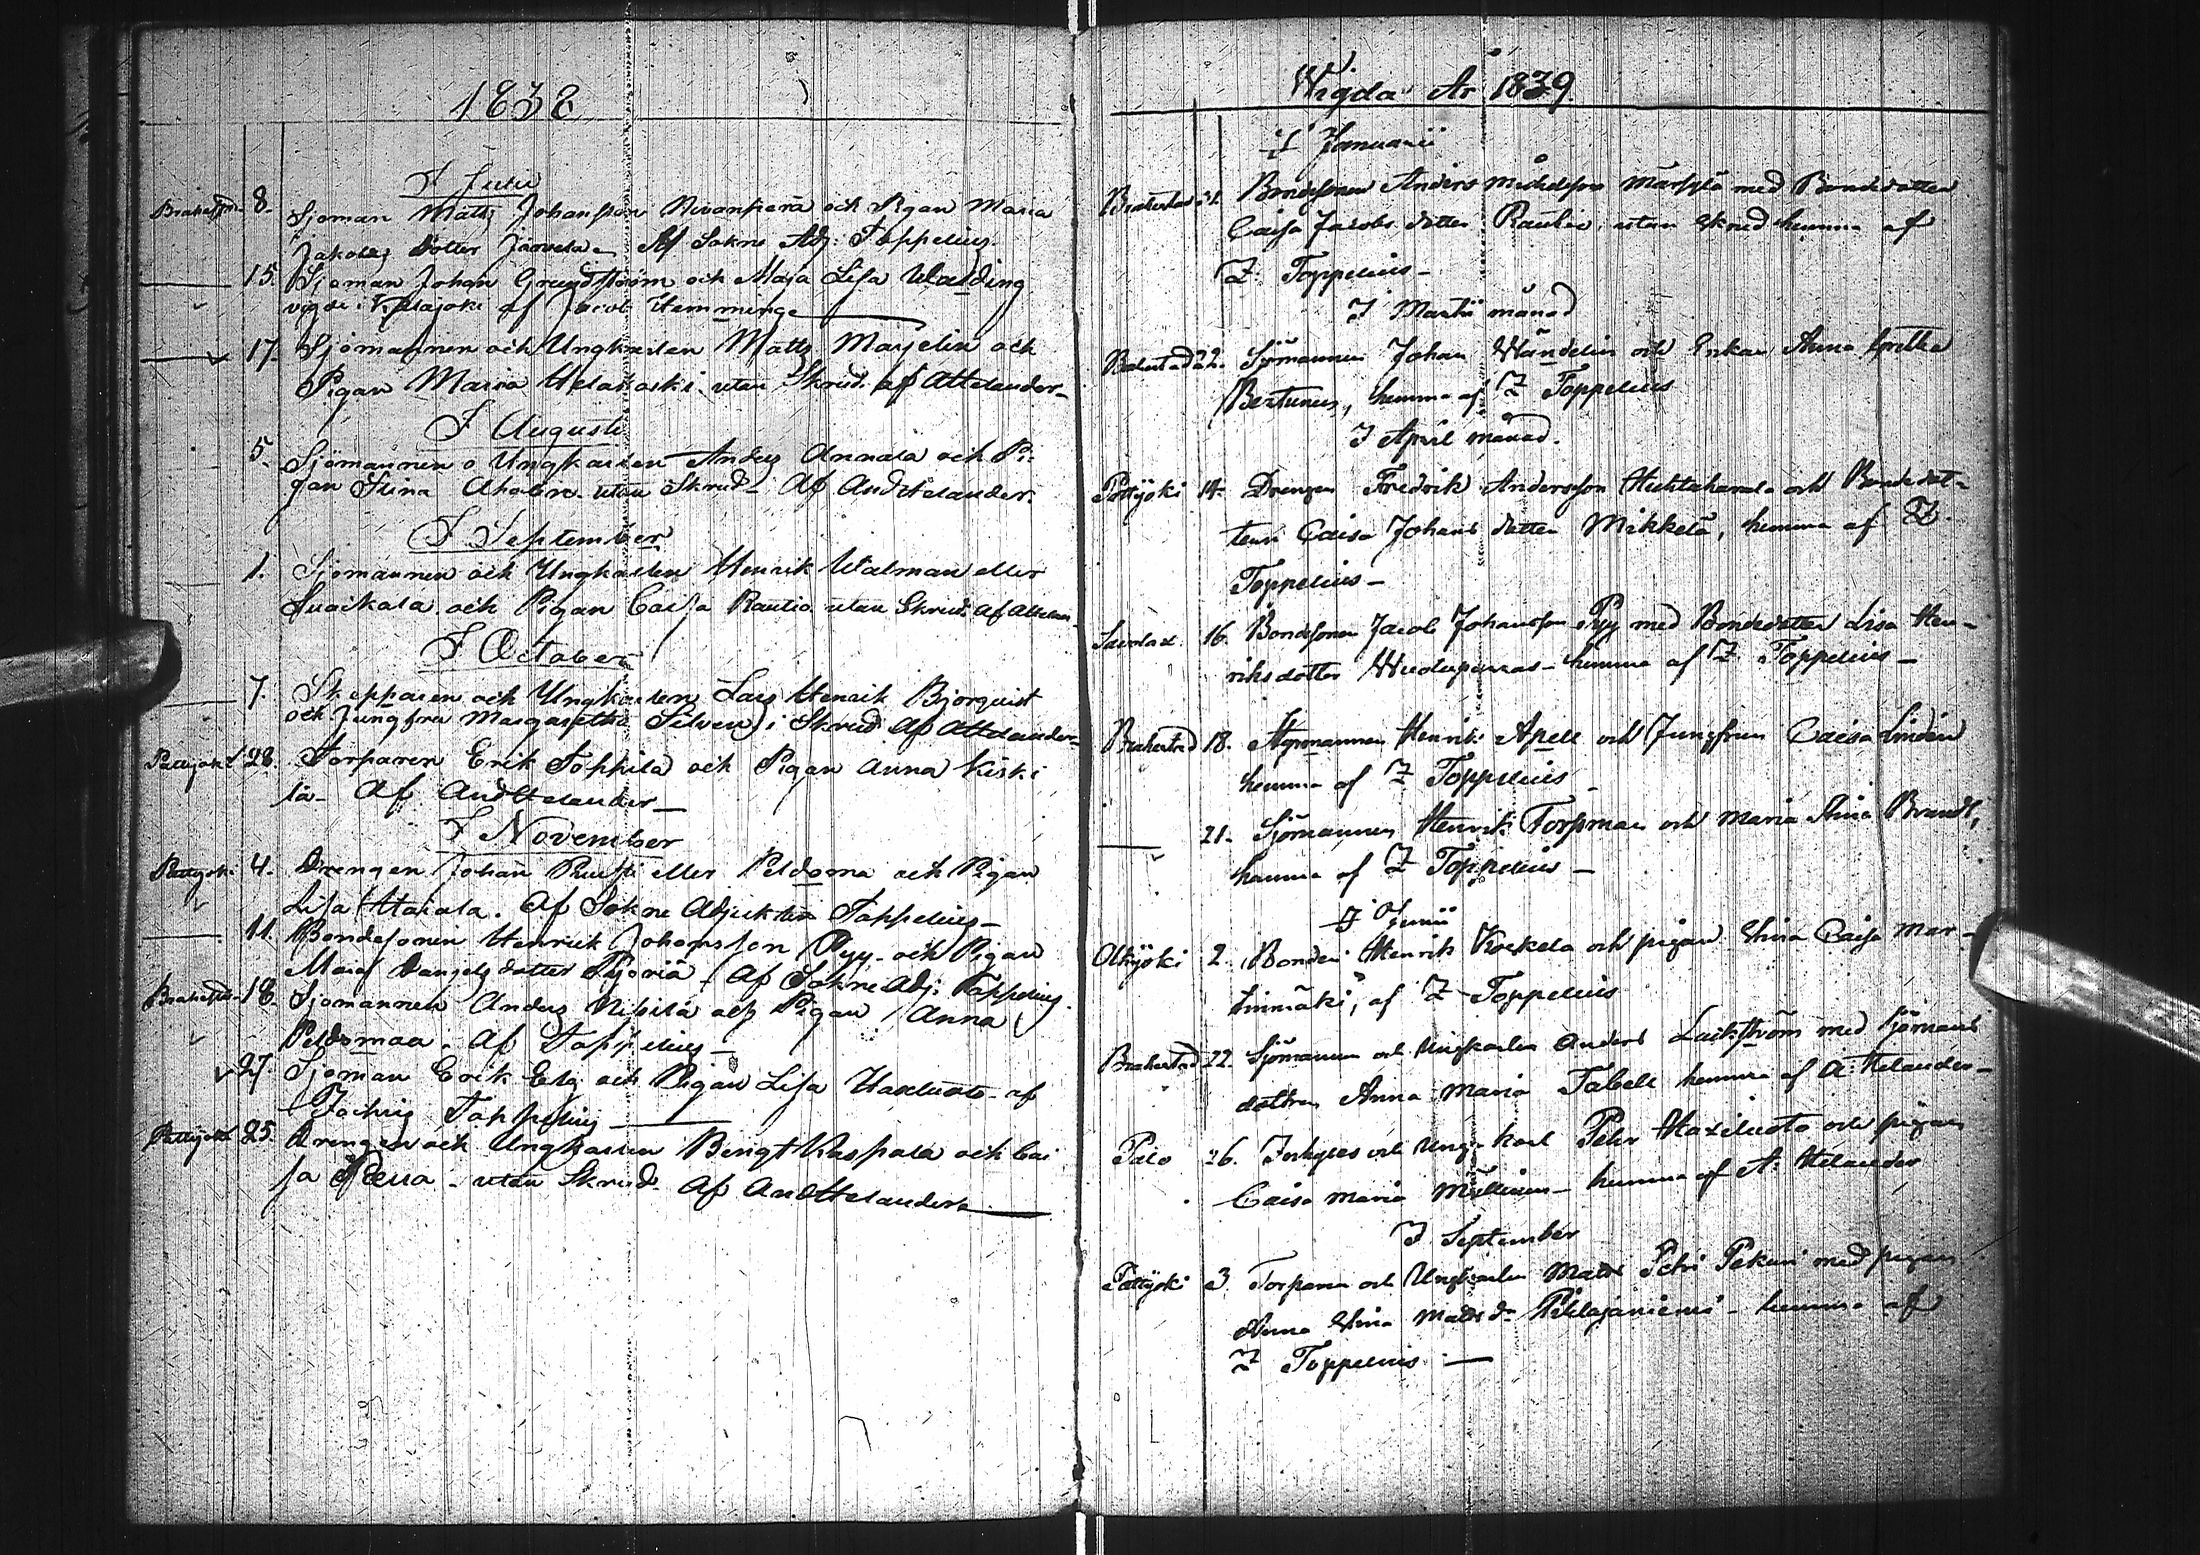 1838
I Julii
Brahestad 8. Sjöman Matts Johansson Nivanperä och Pigan Maria
Jakobs dotter Järvelä. Af Sokne Adj: Toppelius.
15. Sjöman Johan Grundström och Maja Lisa Walding
vigde i Kalajoki af Jacob Hemminge
17. Sjömannen och Ungkarlen Matts Marjelin och
Pigan Maria Helakoski utan Skrud. af AHelander
I Augusti
5. Sjömannen o Ungkarlen Anders Annala och Pi-
gan Stina Ahobro utan Skrud. Af AndHelander.
I September
1. Sjömannen och Ungkarlen Henrik Walman eller
och Pigan Caisa Rautio utan Skrud. af AHelan
I October
7. Skepparen och Ungkarlen Lars Henrik Björqvist
och Jungfru Margaretha Silven, i Skrud. Af AHelander
Pattijoki 28. Torparen Erik Toppila och Pigan Anna Keski
lä. Af AndHelander
I November
Pattijoki 4. Drengen Johan eller Peldoma och Pigan
Lisa Hakala. Af Sokne Adjunkten Toppelius
11. Bondesonen Henrik Johansson Pyy och Pigan
Maria dotter Af Sokne Adj: Toppelius.
Brahestad 18. Sjömannen Anders och Pigan Anna
Peldomaa. Af Toppelius
27. Sjöman Erik och Pigan Lisa af
Toppelius
Pattijoki 25. Drengen och Ungkarlen Bengt och Cai
sa utan Skrud. Af AndHelander
Wigda År 1839
I Januarii
Brahestad 21. Bondesonen Anders Mickelsson Märsylä med Bondedotter
Caisa Jacobs dotter Rautio, utan Skrud hemma af
Z. Toppelius
I Martii månad
Brahestad 22. Sjömannen Johan Wandelin och Enkan Anna Gretha
hemma af Z Toppelius
I April månad.
Pattijoki 14. Drengen Fredrik Andersson Huhtakarala och Bondedot-
tern Caisa Johans dotter Mikkelä, hemma af Z.
Toppelius
16. Bondsonen Jacob Johansson Pyy med Bondedotter Lisa Hen-
riksdotter hemma af Z Toppelius
Brahestad 18. Styrmannen Henrik Apell och Jungfrun Caisa Lindin
hemma af Z Toppelius
21. Sjömannen Henrik Forsman och Maria Stina Brandt,
hemma af Z Toppelius
I Junii
Olkijoki 2. Bonden Henrik Kockela och pigan Stina Caisa Mar-
tinmäki, af Z Toppelius
Brahestad 22. Sjömannen och Ungkarlen Anders Lackström med Sjömans
dottren Anna Maria Tabell hemma af A: Helander
Palo 26. och Ungkarl Pehr Haxiluoto och pigan
Caisa Maria hemma af A: Helander
I September
Pattijoki 3. Torparen och Ungkarlen Matts Pehr Pekuri med pigan
Anna Stina Matsd. hemma af
Z Toppelius